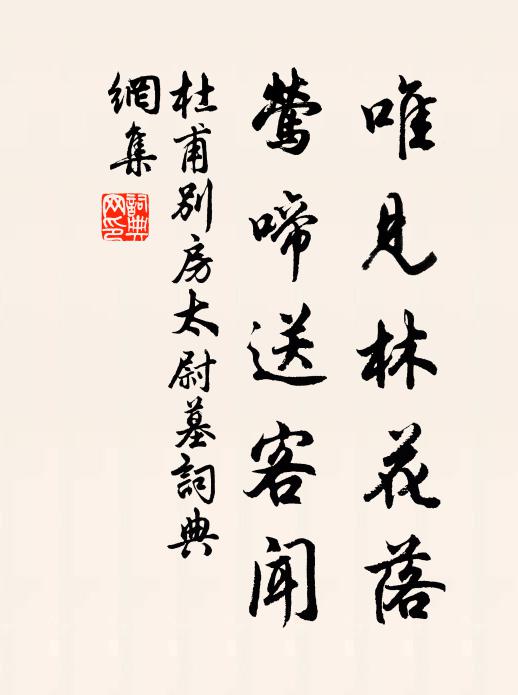 唯見林花落
鶯啼送客聞
杜甫別房太尉墓詞典
網集
詞典
网印